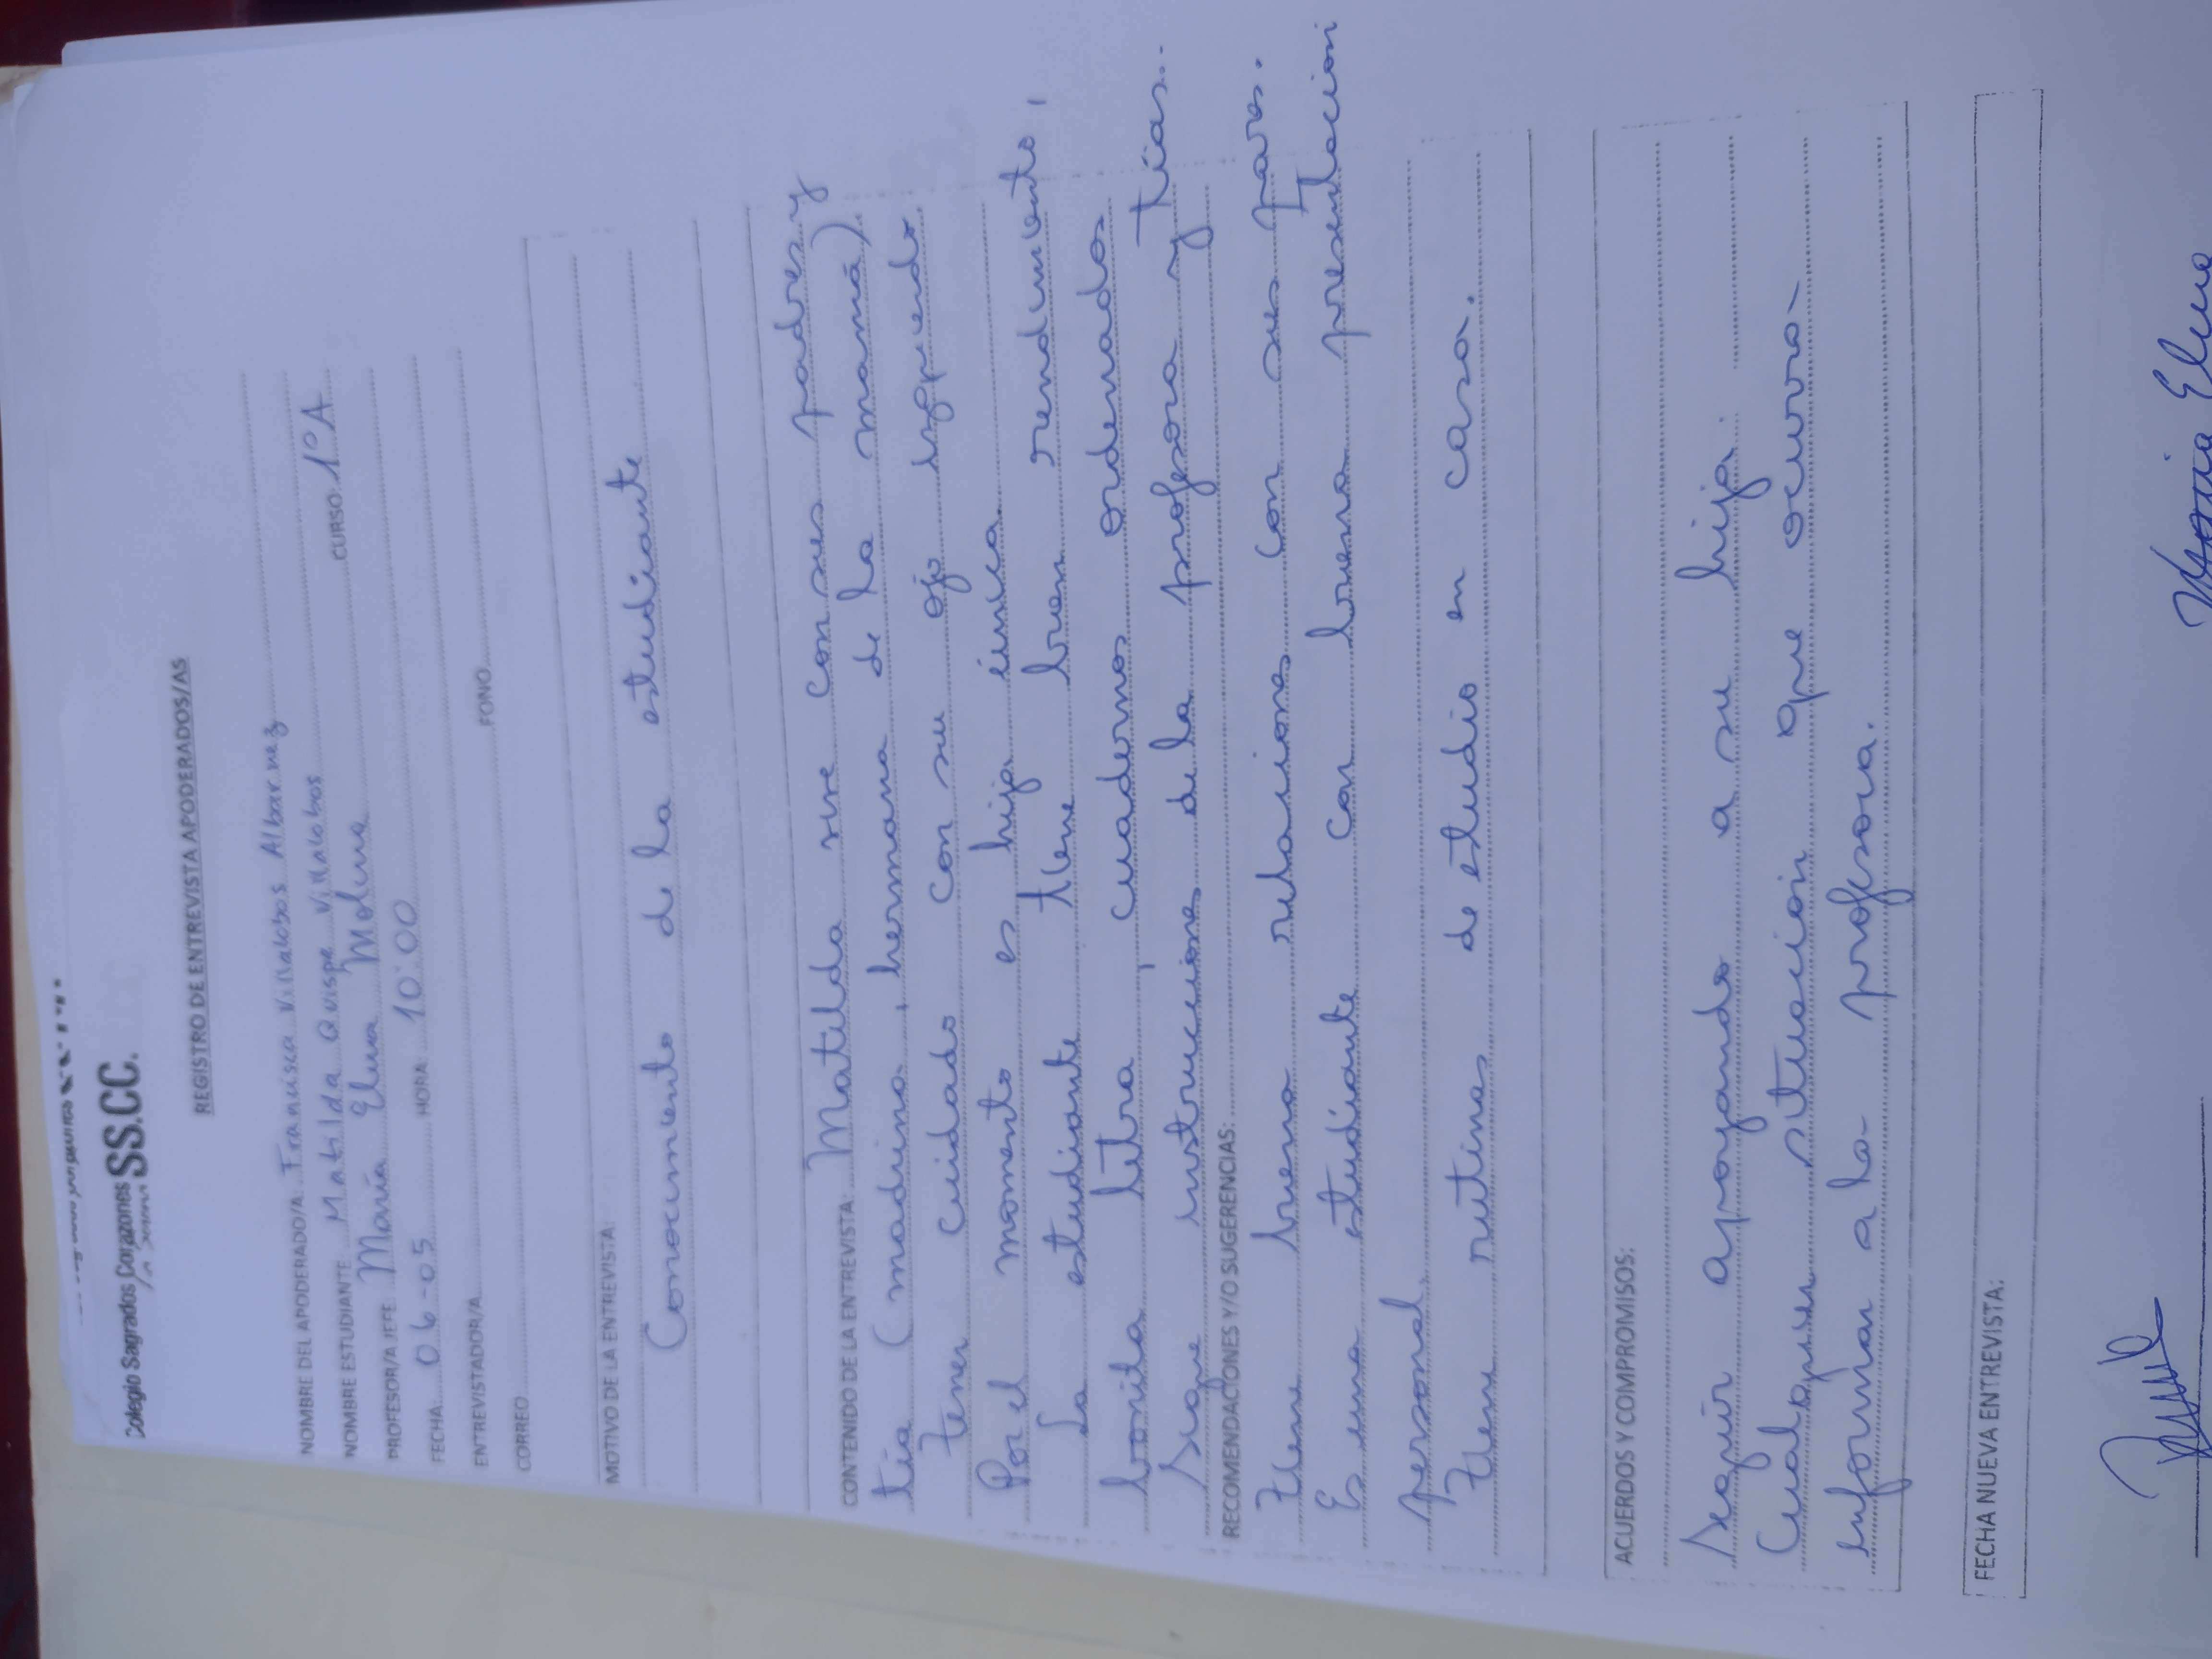 Colegio Sagrados Corazones SS.CC.
REGISTRO DE ENTREVISTA APODERADOS/AS
NOMBRE DEL APODERADO/A: Francisca Villalobos Albornez
NOMBRE ESTUDIANTE: Matilda Quispe Villalobos CURSO: 1°A
PROFESOR/A JEFE: María Elena Molina
FECHA: 06-05 HORA: 10:00
ENTREVISTADOR/A
CORREO FONO
MOTIVO DE LA ENTREVISTA:
Conocimiento de la estudiante
CONTENIDO DE LA ENTREVISTA: Matilda vive con sus padres y
tía (madrina, hermana de la mamá)
Tener cuidado con su ojo izquierdo
Por el momento es hija única.
La estudiante tiene buen rendimiento,
bonita letra, cuadernos ordenados
Sigue instrucciones de la profesora y tías..
RECOMENDACIONES Y/O SUGERENCIAS:
Tiene buena relaciones con sus pares.
Es una estudiante con buena presentación
personal.
Tiene rutinas de estudio en casa.
ACUERDOS Y COMPROMISOS:
Seguir apoyando a su hija.
Cualquier situación que ocurra
informar a la profesora.
FECHA NUEVA ENTREVISTA:
María Elena